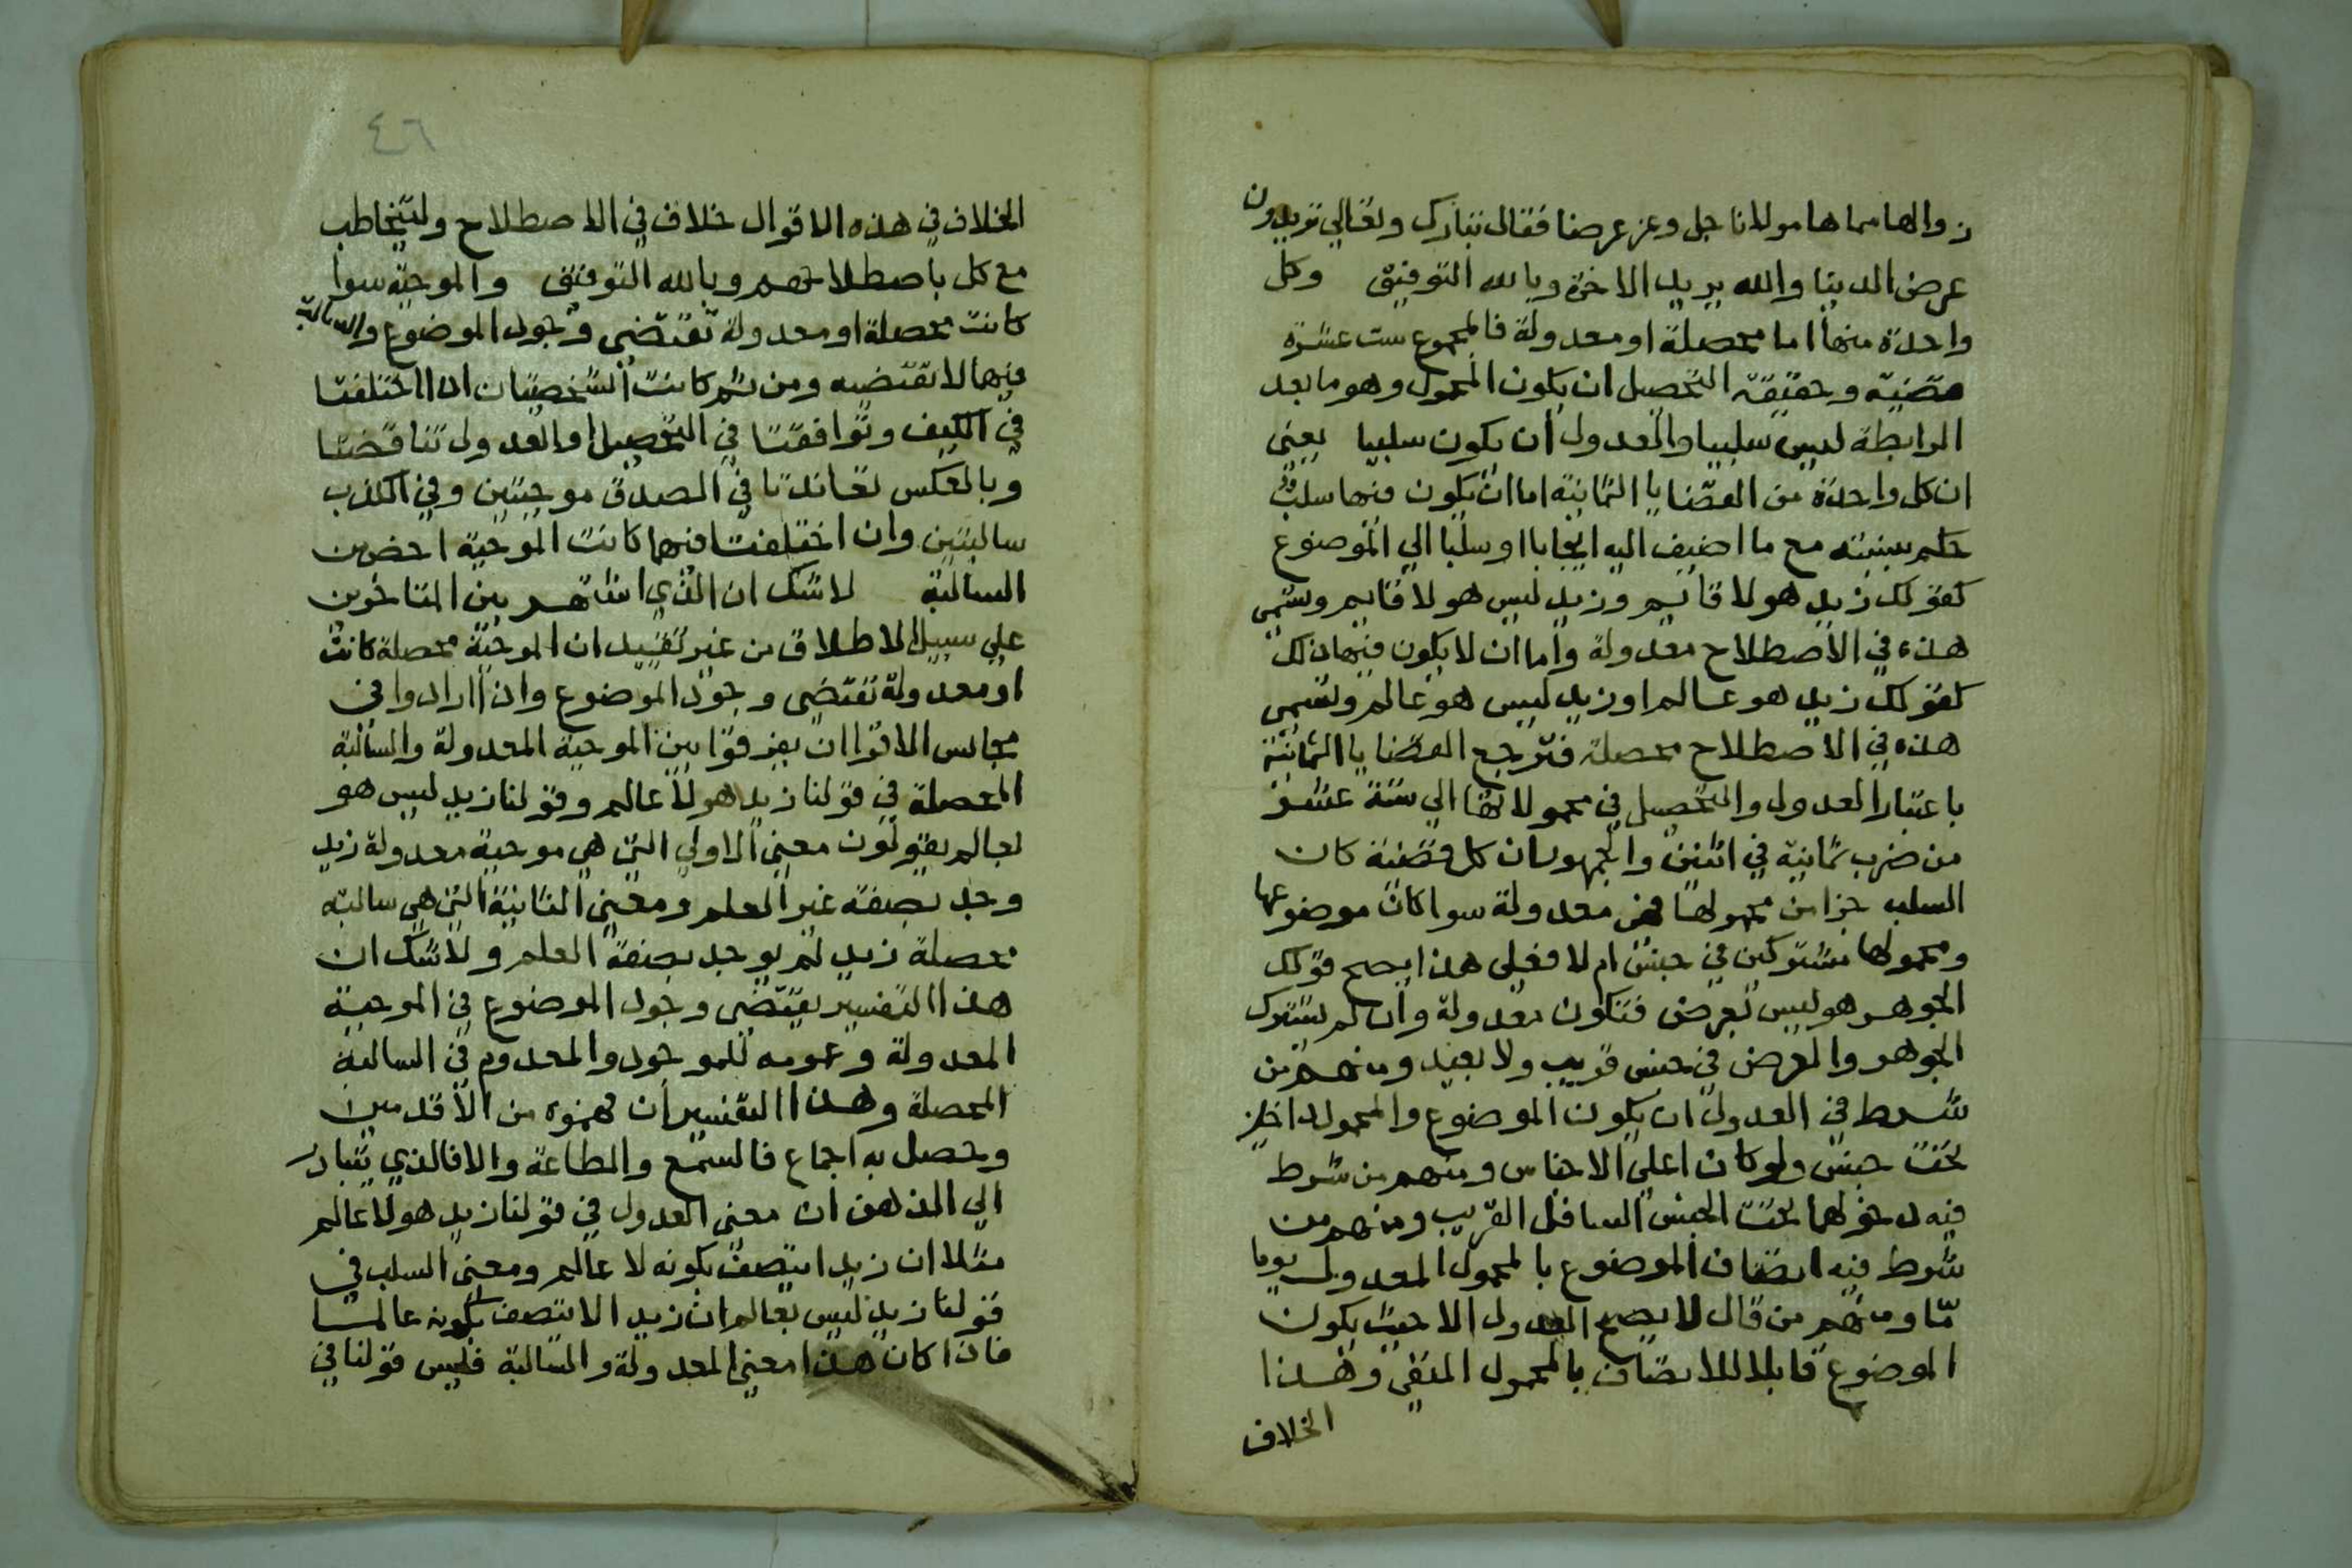 زوالها مما ها مولانا جل وعز عرضا فقال تبارك وتعالي تريدون
عرض الدنيا والله يريد الاخرة وبالله التوفيق وكل
واحدة منها اما محصلة او معدولة فالمجموع ست عشرة
قضية وحقيقة التحصيل ان يكون المحمول وهو ما بعد
الرابطة ليس سلبيا والعدول ان يكون سلبيا يعني
ان كل واحدة من القضايا الثمانية اما ان يكون فيها سلب قد
حكم بنسبته مع ما اضيف اليه ايجابا او سلبا الي الموضوع
كقولك زيد هو لا قايم وزيد ليس هو لا قايم وتسمي
هذه في الاصطلاح معدولة واما ان لا يكون فيها ذلك
كقولك زيد هو عالم او زيد ليس هو عالم وتسمي
هذه في الاصطلاح محصلة فترجع القضايا الثمانية
باعتبار العدول والتحصيل في محمولاتها الي ستة عشر
من ضرب ثمانية في اثنين والجمهور ان كل قضية كان
السلب جزا من محمولها فهي معدولة سوا كان موضوعها
ومحمولها مشتركين في جنس ام لا فعلي هذا يصح قولك
الجوهر هو ليس بعرض فتكون معدولة وان لم يشترك
الجوهر والعرض في جنس قريب ولا بعيد ومنهم من
شرط في العدول ان يكون الموضوع والمحمول داخلين
تحت جنس ولو كان اعلي الاجناس ومنهم من شرط
فيه دخولهما تحت الجنس السافل القريب ومنهم من
شرط فيه اتصاف الموضوع بالمحمول المعدول يوما
مّا ومنهم من قال لا يصح العدول الا حيث يكون
الموضوع قابلا للاتصاف بالمحمول المنفي وهذا
الخلاف
٤٦
الخلاف في هذه الاقوال خلاف في الاصطلاح وليتخاطب
مع كل باصطلاحهم وبالله التوفيق والموجبة سوا
كانت محصلة او معدولة تقتضي وجود الموضوع والسالبة
فيهما لا تقتضيه ومن ثم كانت الشخصيتان اذا اختلفتا
في الكيف وتوافقتا في التحصيل او العدول تناقضتا
وبالعكس تعاندتا في الصدق موجبتين وفي الكذب
سالبتين وان اختلفتا فيهما كانت الموجبة اخص من
السالبة لا شك ان الذي اشتهر بين المتاخرين
علي سبيل الاطلاق من غير تقييد ان الموجبة محصلة كانت
او معدولة تقتضي وجود الموضوع وان ارادوا في
مجالس الاقرا ان يفرقوا بين الموجبة المعدولة والسالبة
المحصلة في قولنا زيد هو لا عالم وقولنا زيد ليس هو
بعالم يقولون معني الاولي التي هي موجبة معدولة زيد
وجد بصفة غير العلم ومعني الثانية التي هي سالبة
محصلة زيد لم يوجد بصفة العلم ولا شك ان
هذا التفسير يقتضي وجود الموضوع في الموجبة
المعدولة وعومه للموجود والمعدوم في السالبة
المحصلة وهذا التفسير ان فهموه من الاقدمين
وحصل به اجماع فالسمع والطاعة والا فالذي يتبادر
الي الذهن ان معني العدول في قولنا زيد هو لا عالم
مثلا ان زيدا يتصف بكونه لا عالم ومعني السلب في
قولنا زيد ليس بعالم ان زيدا لا يتصف بكونه عالما
فاذا كان هذا معني المعدولة والسالبة فليس قولنا في